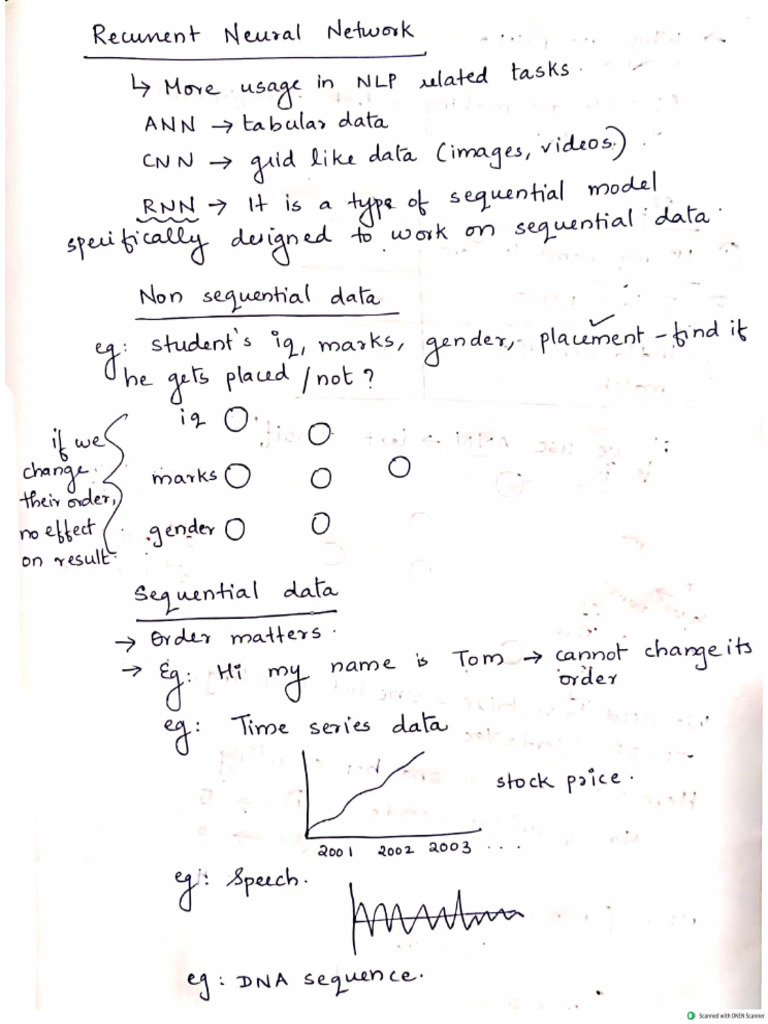 Recurrent Neural Network
↳ More usage in NLP related tasks.
ANN → tabular data
CNN → grid like data (images, videos)
RNN → It is a type of sequential model
specifically designed to work on sequential data.
Non sequential data
eg: student's iq, marks, gender, placement - find if
he gets placed / not ?
iq
if we
change
their order,
no effect
on result.
marks
gender
Sequential data
→ Order matters.
→ Eg: Hi my name is Tom → cannot change its
order
eg: Time series data
stock price.
2001 2002 2003 ....
eg: Speech.
eg: DNA sequence.
Scanned with OKEN Scanner